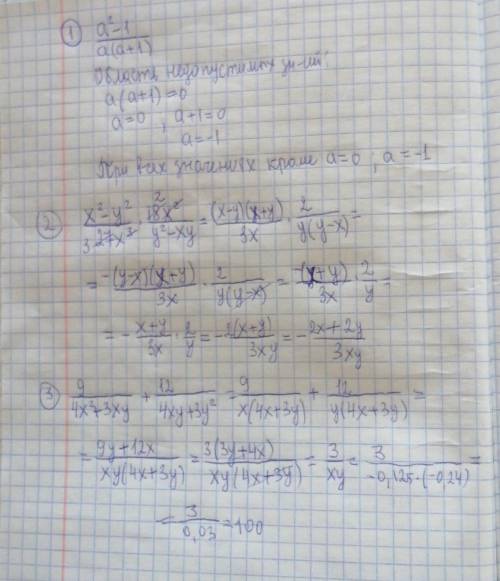 ① a²-1
a(a+1)
Область недопустимых зн-ий:
a(a+1)=0
a=0 , a+1=0
a=-1
При всех значениях кроме a=0 ; a=-1
② (x²-y²)/(3 27x³) · (2 18x²)/(y²-xy) = ((x-y)(x+y))/(3x) · 2/(y(y-x)) =
= (-(y-x)(x+y))/(3x) · 2/(y(y-x)) = (-(x+y))/(3x) · 2/y =
= - (x+y)/(3x) · 2/y = - (2(x+y))/(3xy) = - (2x+2y)/(3xy)
③ 9/(4x²+3xy) + 12/(4xy+3y²) = 9/(x(4x+3y)) + 12/(y(4x+3y)) =
= (9y+12x)/(xy(4x+3y)) = (3(3y+4x))/(xy(4x+3y)) = 3/(xy) = 3/(-0,125·(-0,24)) =
= 3/(0,03) = 100